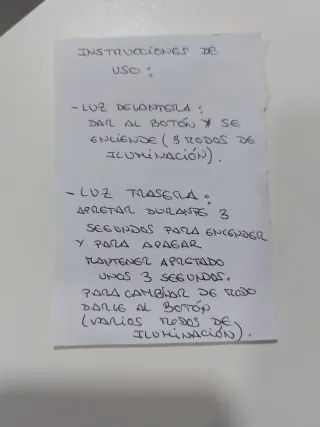 INSTRUCCIONES DE
USO:
- LUZ DELANTERA:
DAR AL BOTÓN Y SE
ENCIENDE (3 MODOS DE
ILUMINACIÓN).
- LUZ TRASERA:
APRETAR DURANTE 3
SEGUNDOS PARA ENCENDER
Y PARA APAGAR
MANTENER APRETADO
UNOS 3 SEGUNDOS.
PARA CAMBIAR DE MODO
DARLE AL BOTÓN
(VARIOS MODOS DE
ILUMINACIÓN).